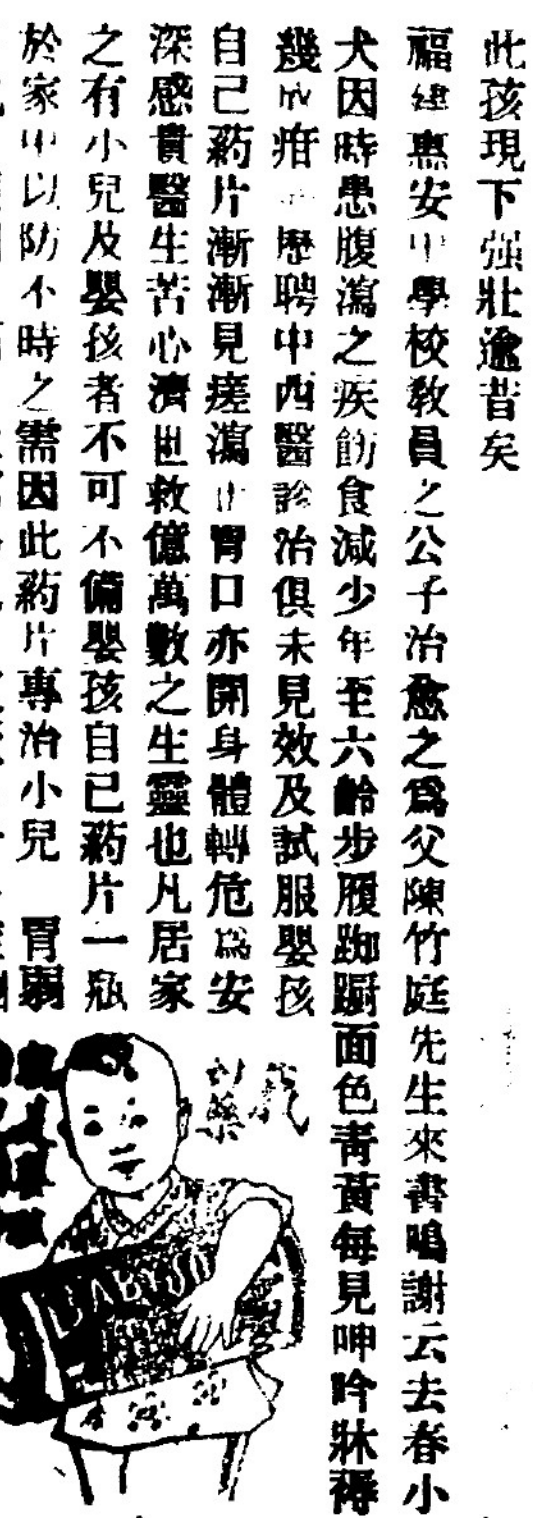 此孩現下强壯逾昔矣
福建惠安中學校教員之公子治愈之爲父陳竹庭先生來書鳴謝云去春小
犬因時患腹瀉之疾飲食減少年至六齡步履踟蹰面色靑黃每見呻吟牀褥
幾成疳 歷聘中西醫診治俱未見效及試服嬰孩
自己葯片漸漸見瘥瀉止胃口亦開身體轉危爲安
深感貴醫生苦心濟世救億萬數之生靈也凡居家
之有小兒及嬰孩者不可不備嬰孩自己葯片一瓶
於家中以防不時之需因此葯片專治小兒 胃弱
BABY'S O